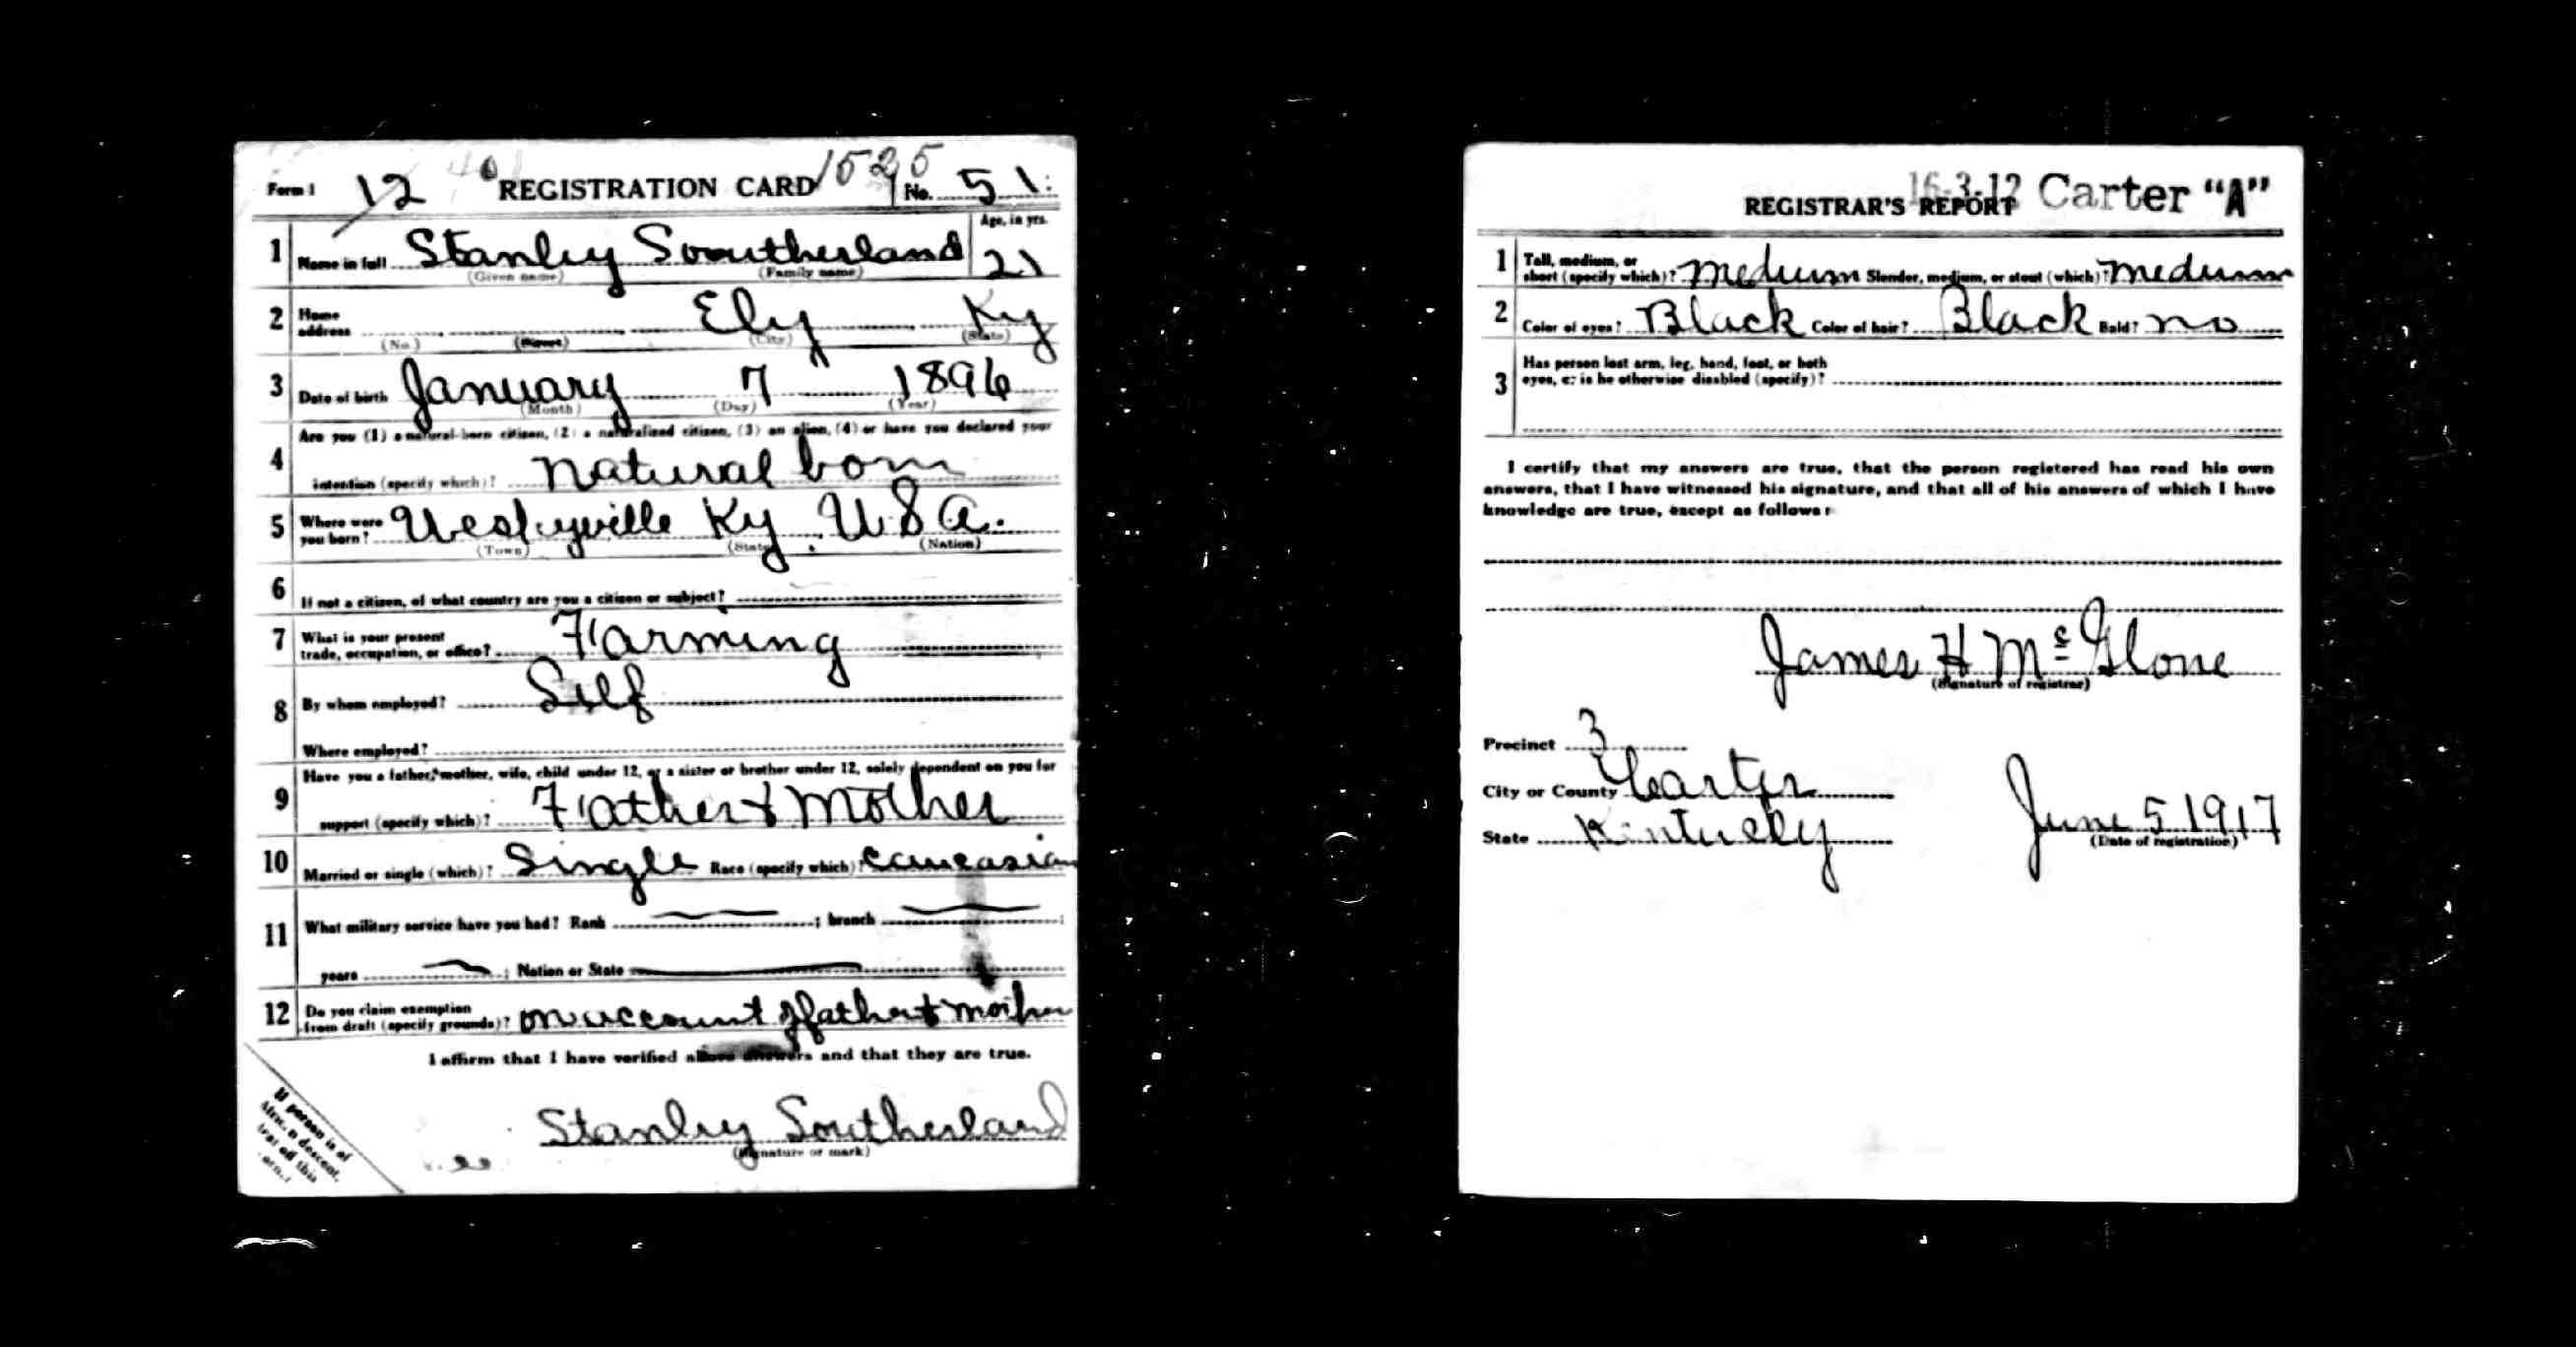 Form 1 12 REGISTRATION CARD 1525 No. 51
Age, in yrs.
1 Name in full Stanley Sooutherland 21
(Given name) (Family name)
2 Home address Ely Ky
(No.) (Street) (City) (State)
3 Date of birth January 7 1896
(Month) (Day) (Year)
4 Are you (1) a natural-born citizen, (2) a naturalized citizen, (3) an alien, (4) or have you declared your
intention (specify which)? natural born
5 Where were you born? Wesleyville Ky. U.S.A.
(Town) (State) (Nation)
6 If not a citizen, of what country are you a citizen or subject?
7 What is your present trade, occupation, or office? Farming
8 By whom employed? Self
Where employed?
9 Have you a father, mother, wife, child under 12, or a sister or brother under 12, solely dependent on you for
support (specify which)? Father & Mother
10 Married or single (which)? Single Race (specify which)? Caucasian
11 What military service have you had? Rank ; branch ;
years ; Nation or State
12 Do you claim exemption from draft (specify grounds)? on account of father & mother
I affirm that I have verified above answers and that they are true.
Stanley Southerland
(Signature or mark)
If person is of
descent,
tear off this
16-3-12 Carter "A"
REGISTRAR'S REPORT
1 Tall, medium, or short (specify which)? medium Slender, medium, or stout (which)? medium
2 Color of eyes? Black Color of hair? Black Bald? no
3 Has person lost arm, leg, hand, foot, or both
eyes, or is he otherwise disabled (specify)?
I certify that my answers are true, that the person registered has read his own
answers, that I have witnessed his signature, and that all of his answers of which I have
knowledge are true, except as follows:
James H McGlone
(Signature of registrar)
Precinct 3
City or County Carter
State Kentucky
June 5 1917
(Date of registration)